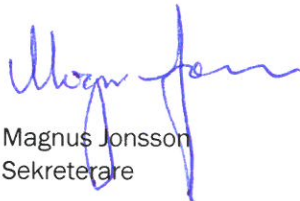 Magnus Jonsson
Sekreterare